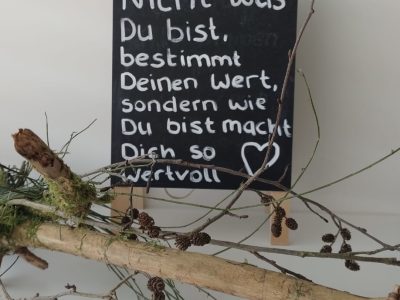 Nicht was
Du bist,
bestimmt
Deinen Wert,
sondern wie
Du bist macht
Dich so
wertvoll